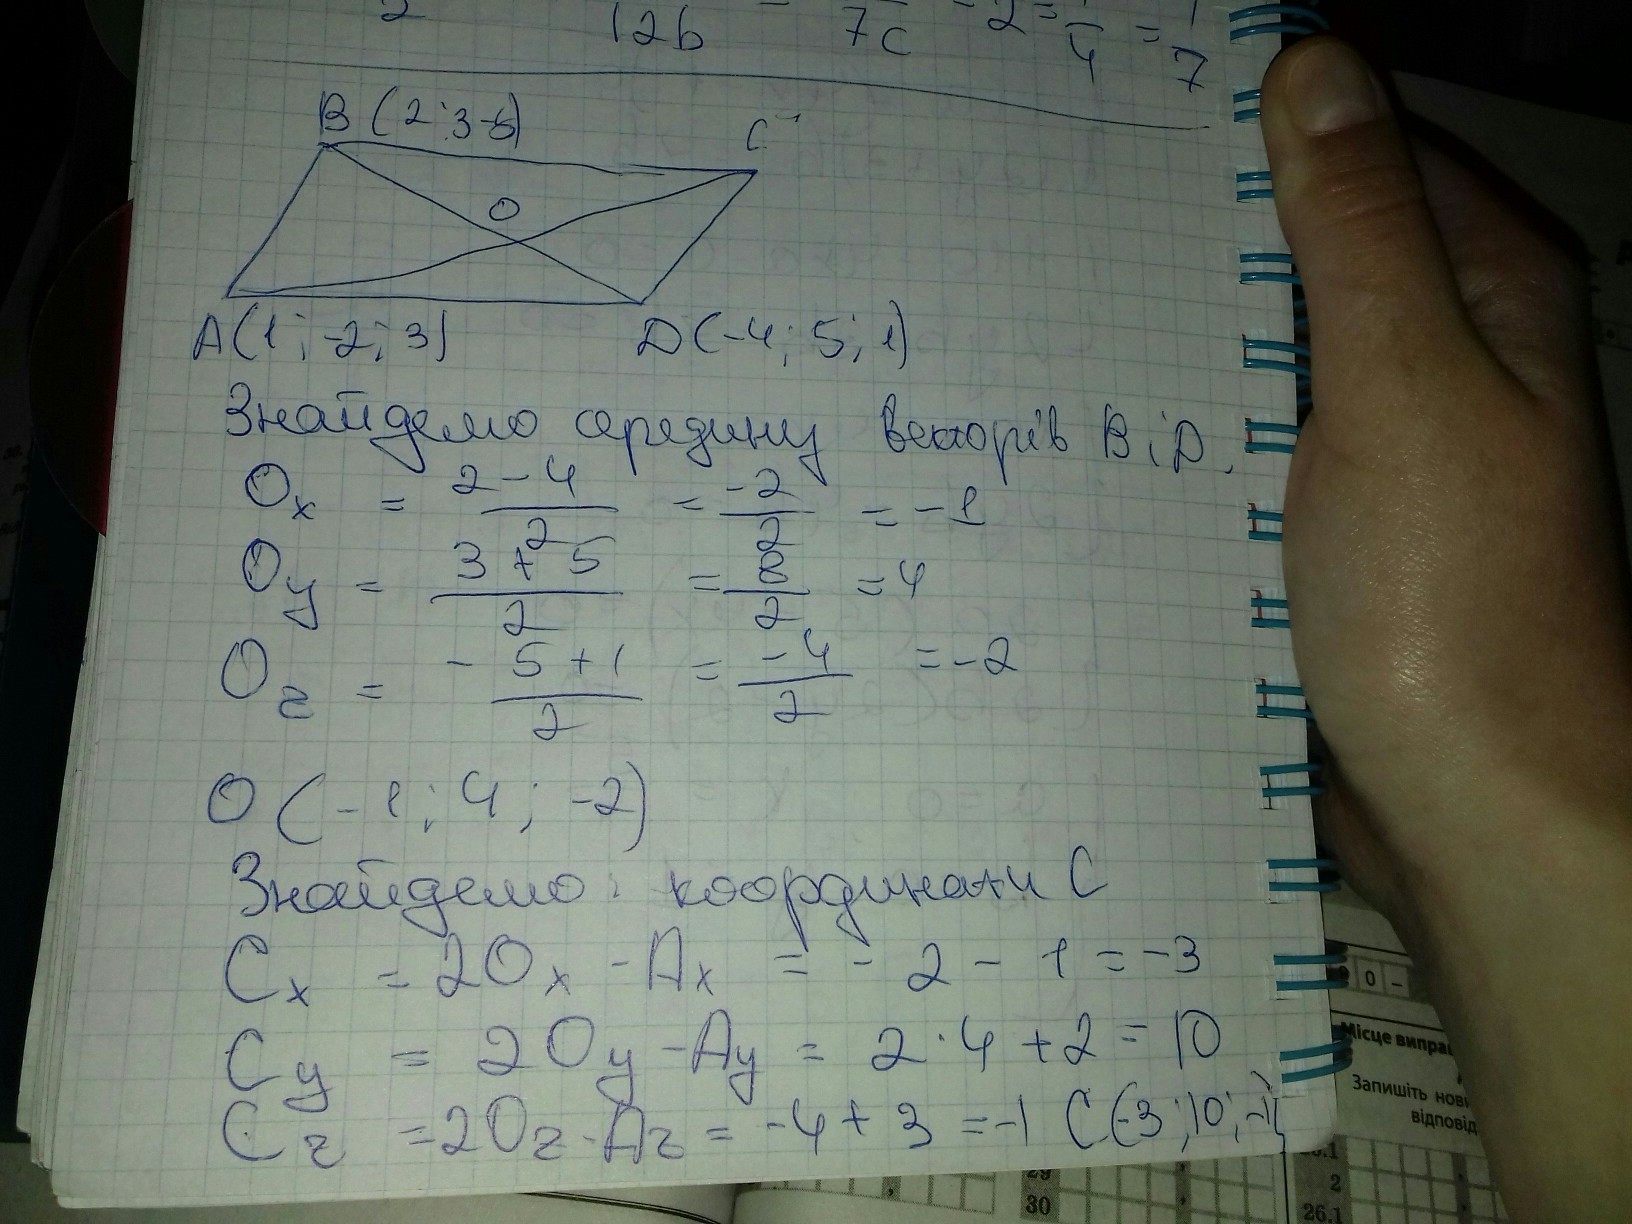 2 12b - 7c - 2 = 1/4 = 1/7
B (2;3-5) C
O
A(1;-2;3) D(-4;5;1)
Знайдемо середину векторів B і D.
Ox = (2-4)/2 = -2/2 = -1
Oy = (3+5)/2 = 8/2 = 4
Oz = (-5+1)/2 = -4/2 = -2
O(-1;4;-2)
Знайдемо: координати C
Cx = 2Ox - Ax = -2-1 = -3
Cy = 2Oy - Ay = 2·4+2 = 10
Cz = 2Oz - Az = -4+3 = -1 C(-3;10;-1)
0 -
Місце випра
Запишіть нов
відповід
29
30
2
26.1